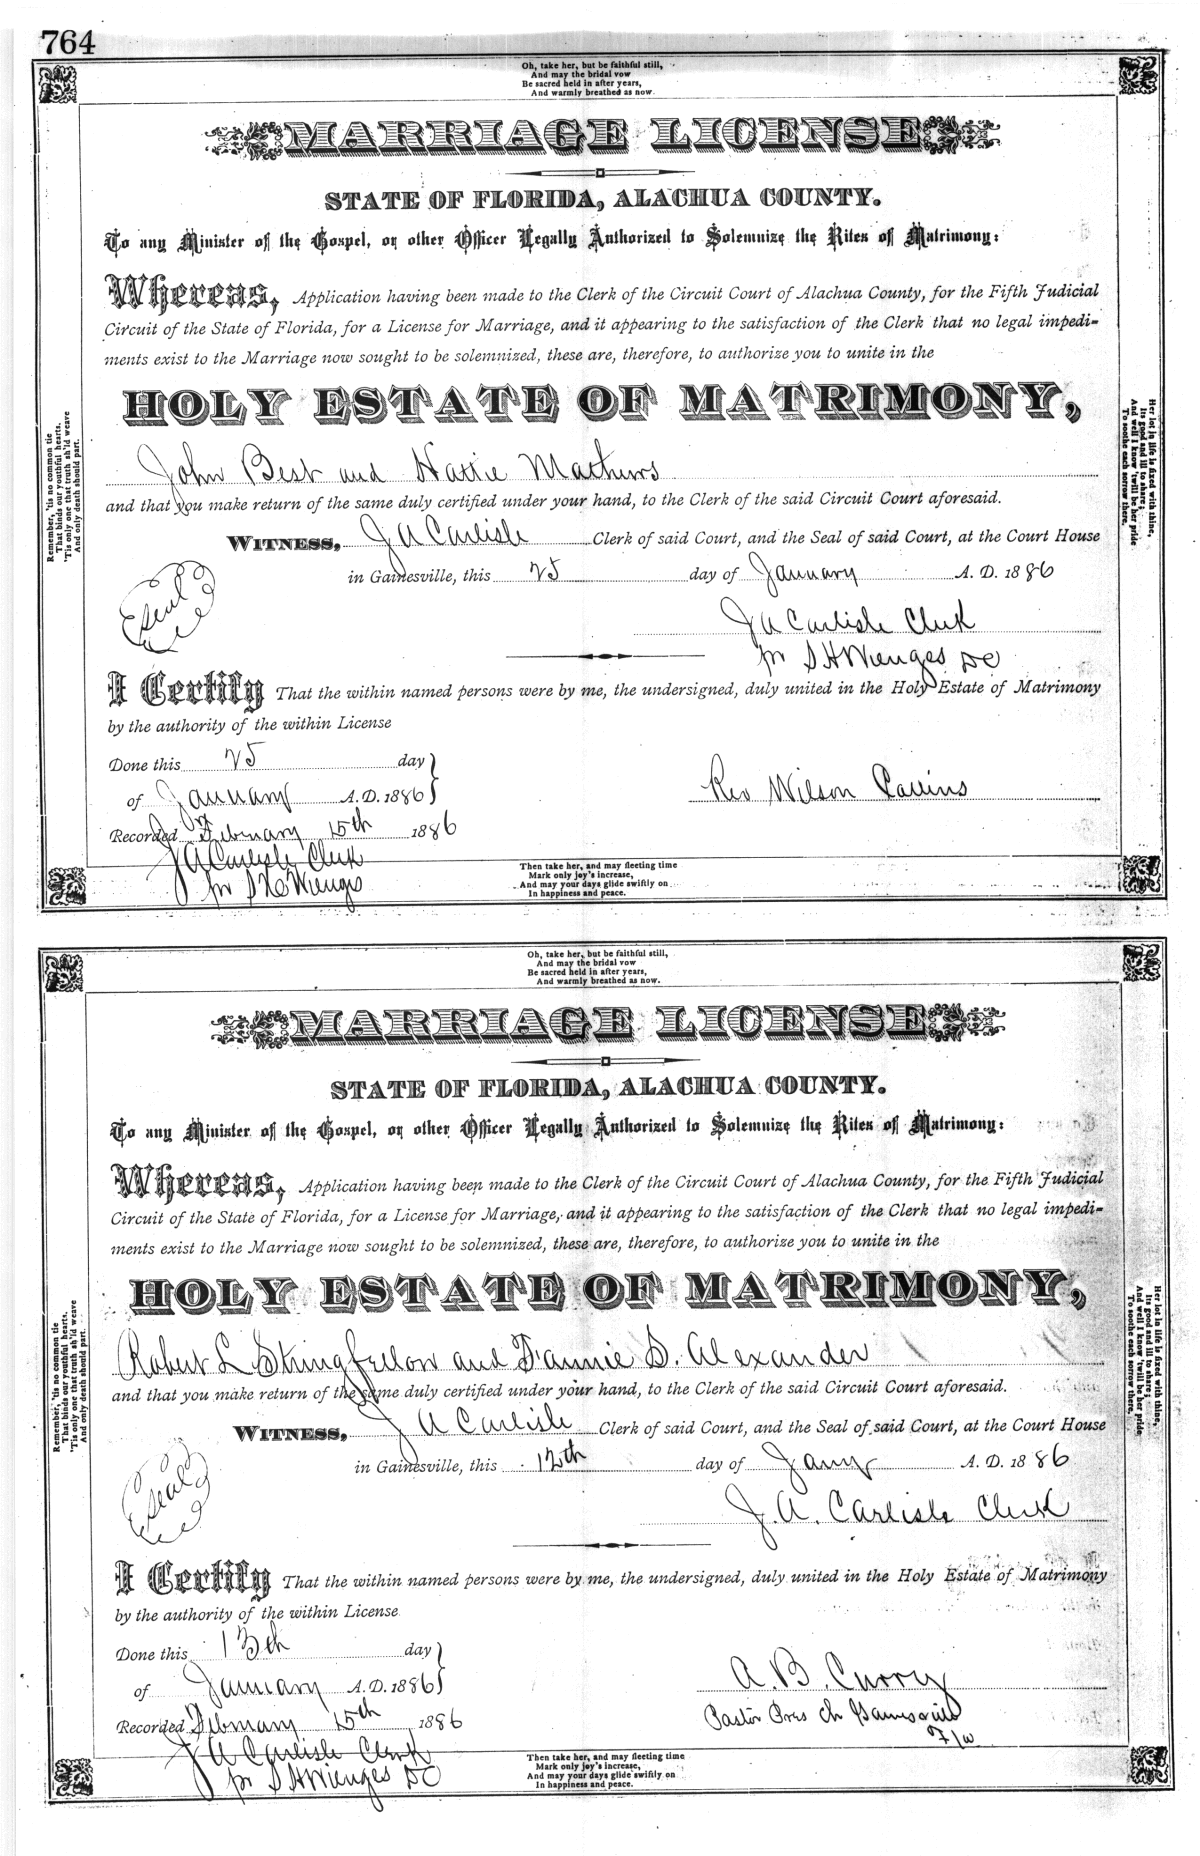 764
Oh, take her, but be faithful still,
And may the bridal vow
Be sacred held in after years,
And warmly breathed as now.
MARRIAGE LICENSE
STATE OF FLORIDA, ALACHUA COUNTY.
To any Minister of the Gospel, or other Officer Legally Authorized to Solemnize the Rites of Matrimony:
Whereas, Application having been made to the Clerk of the Circuit Court of Alachua County, for the Fifth Judicial
Circuit of the State of Florida, for a License for Marriage, and it appearing to the satisfaction of the Clerk that no legal impedi-
ments exist to the Marriage now sought to be solemnized, these are, therefore, to authorize you to unite in the
HOLY ESTATE OF MATRIMONY,
John Best and Hattie Mathews
and that you make return of the same duly certified under your hand, to the Clerk of the said Circuit Court aforesaid.
WITNESS, J A Carlisle Clerk of said Court, and the Seal of said Court, at the Court House
in Gainesville, this 25 day of January A. D. 1886
Seal
J A Carlisle Clerk
pr S H Wienges DC
I Certify That the within named persons were by me, the undersigned, duly united in the Holy Estate of Matrimony
by the authority of the within License
Done this 25 day
of January A. D. 1886
Rev Wilson
Recorded February 15th 1886
J A Carlisle Clerk
pr S H Wienges
Remember, 'tis no common tie
That binds our youthful hearts.
'Tis only one that truth sh'ld weave
And only death should part.
Her lot in life is fixed with thine,
Its good and ill to share;
And well I know 'twill be her pride
To soothe each sorrow there.
Then take her, and may fleeting time
Mark only joy's increase,
And may your days glide swiftly on
In happiness and peace.
Oh, take her, but be faithful still,
And may the bridal vow
Be sacred held in after years,
And warmly breathed as now.
MARRIAGE LICENSE
STATE OF FLORIDA, ALACHUA COUNTY.
To any Minister of the Gospel, or other Officer Legally Authorized to Solemnize the Rites of Matrimony:
Whereas, Application having been made to the Clerk of the Circuit Court of Alachua County, for the Fifth Judicial
Circuit of the State of Florida, for a License for Marriage, and it appearing to the satisfaction of the Clerk that no legal impedi-
ments exist to the Marriage now sought to be solemnized, these are, therefore, to authorize you to unite in the
HOLY ESTATE OF MATRIMONY,
Robert L Stringfellow and Fannie S. Alexander
and that you make return of the same duly certified under your hand, to the Clerk of the said Circuit Court aforesaid.
WITNESS, J A Carlisle Clerk of said Court, and the Seal of said Court, at the Court House
in Gainesville, this 12th day of Jany A. D. 1886
Seal
J. A. Carlisle Clerk
I Certify That the within named persons were by me, the undersigned, duly united in the Holy Estate of Matrimony
by the authority of the within License
Done this 13th day
of January A. D. 1886
A. B. Curry
Pastor Pres Ch Gainesville
Fla
Recorded February 15th 1886
J A Carlisle Clerk
pr S H Wienges DC
Remember, 'tis no common tie
That binds our youthful hearts.
'Tis only one that truth sh'ld weave
And only death should part.
Her lot in life is fixed with thine,
Its good and ill to share;
And well I know 'twill be her pride
To soothe each sorrow there.
Then take her, and may fleeting time
Mark only joy's increase,
And may your days glide swiftly on
In happiness and peace.